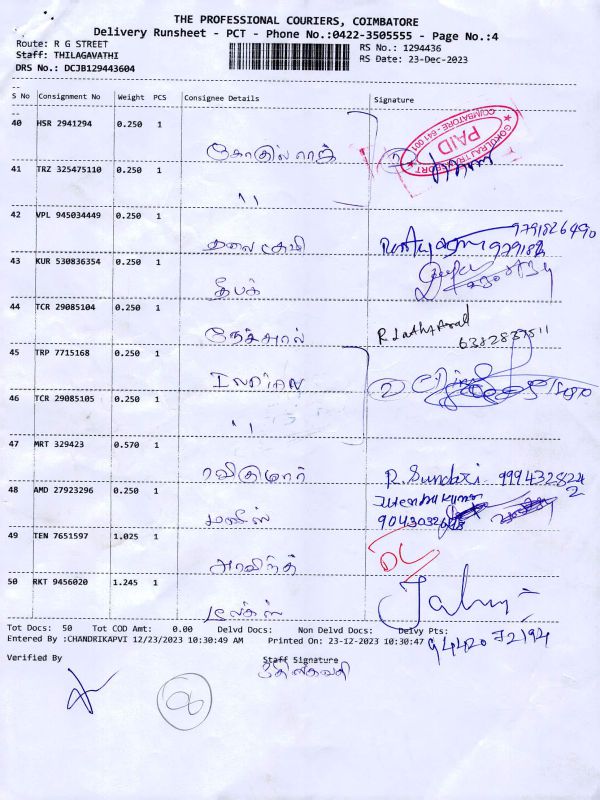 THE PROFESSIONAL COURIERS, COIMBATORE
Delivery Runsheet - PCT - Phone No.:0422-3505555 - Page No.:4
Route: R G STREET
RS No.: 1294436
Staff: THILAGAVATHI
RS Date: 23-Dec-2023
DRS No.: DCJB129443604
S No Consignment No Weight PCS Consignee Details Signature
40 HSR 2941294 0.250 1
கோகுல்ராஜ்
GOKULRAJ TRANSPORT
PAID
COIMBATORE - 641 001
41 TRZ 325475110 0.250 1
"
42 VPL 945034449 0.250 1
9791826490
43 KUR 530836354 0.250 1
தீபக்
44 TCR 29085104 0.250 1
6372837511
45 TRP 7715168 0.250 1
46 TCR 29085105 0.250 1
2
"
47 MRT 329423 0.570 1
ரவிகுமார் R. Sundari 9994328242
48 AMD 27923296 0.250 1
Jitendrakumar
49 TEN 7651597 1.025 1
அரவிந்த் DC
50 RKT 9456020 1.245 1
Tot Docs: 50 Tot COD Amt: 0.00 Delvd Docs: Non Delvd Docs: Delvy Pts:
Entered By :CHANDRIKAPVI 12/23/2023 10:30:49 AM Printed On: 23-12-2023 10:30:47
94420 72194
Verified By Staff Signature
திலகவதி
8